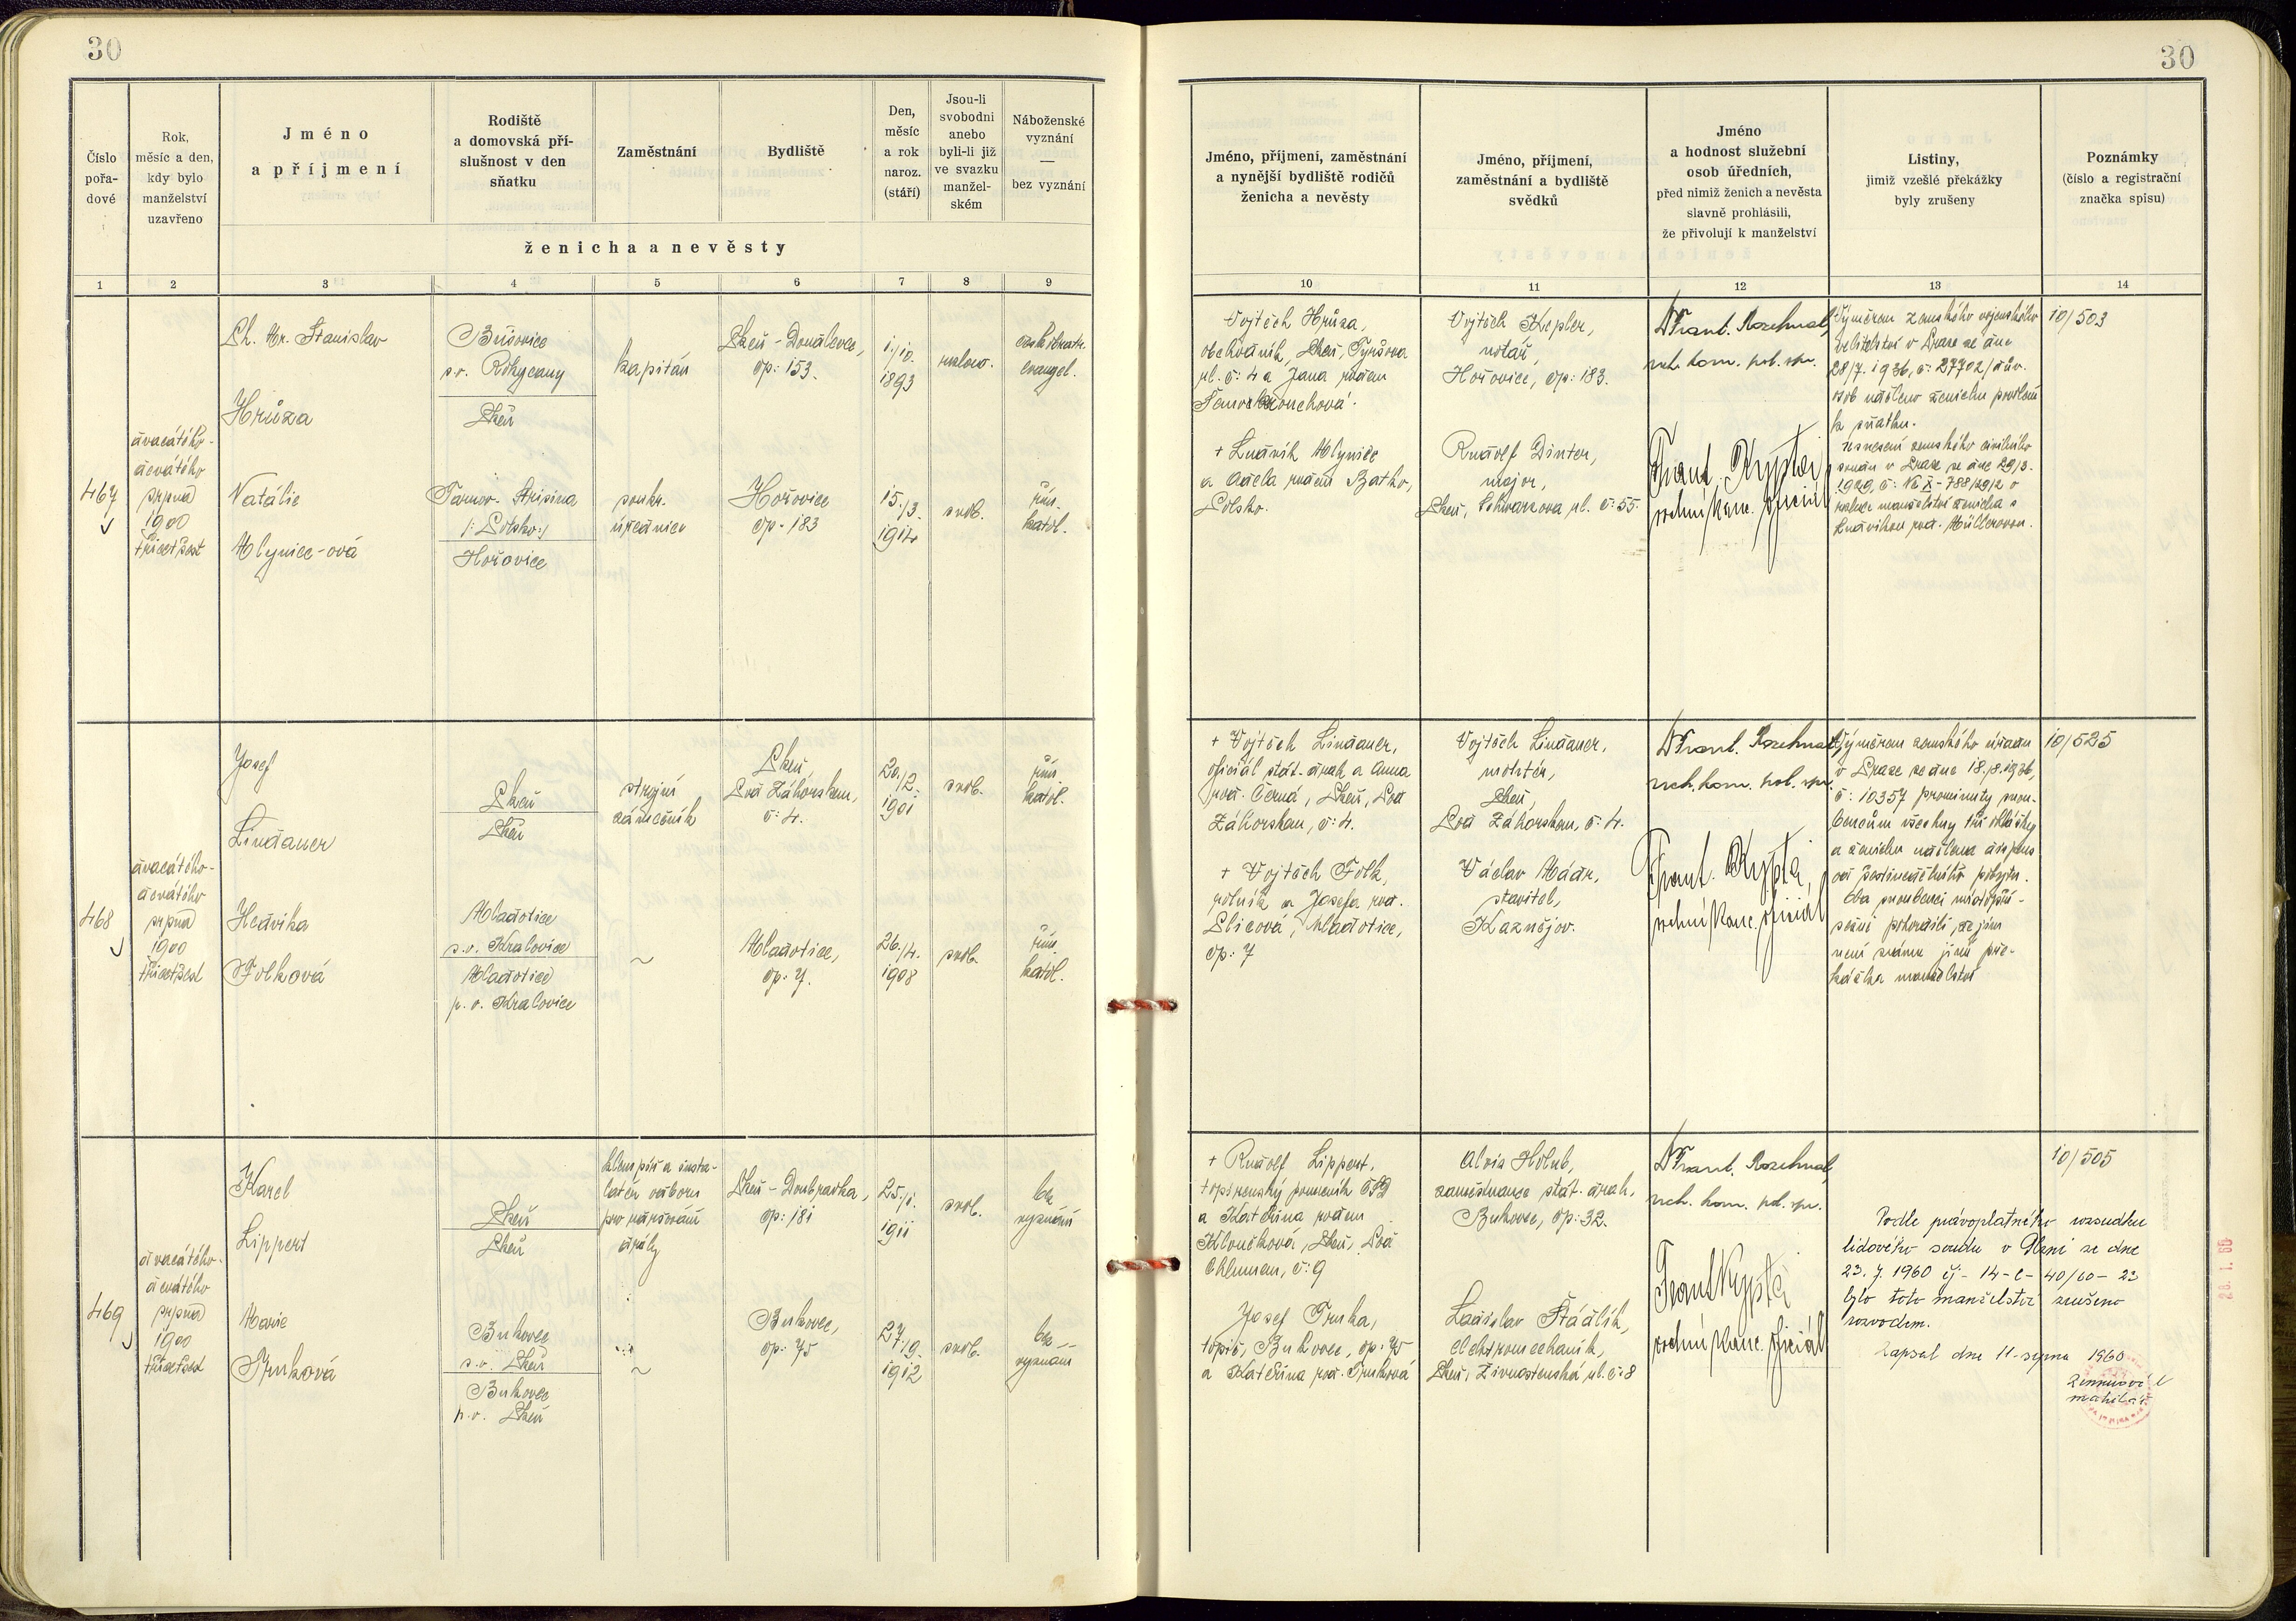 30
30
Číslo
pořa-
dové
Rok,
měsíc a den,
kdy bylo
manželství
uzavřeno
Jméno
a příjmení
Rodiště
a domovská pří-
slušnost v den
sňatku
Zaměstnání
Bydliště
Den,
měsíc
a rok
naroz.
(stáří)
Jsou-li
svobodni
anebo
byli-li již
ve svazku
manžel-
ském
Náboženské
vyznání
—
bez vyznání
ženicha a nevěsty
Jméno, příjmení, zaměstnání
a nynější bydliště rodičů
ženicha a nevěsty
Jméno, příjmení,
zaměstnání a bydliště
svědků
Jméno
a hodnost služební
osob úředních,
před nimiž ženich a nevěsta
slavně prohlásili,
že přivolují k manželství
Listiny,
jimiž vzešlé překážky
byly zrušeny
Poznámky
(číslo a registrační
značka spisu)
1 2 3 4 5 6 7 8 9
10 11 12 13 14
467
dvacátého-
devátého
srpna
1900
třicetšest
Stanislav
Hrůza
Bušovice
s.o. Rokycany
Plzeň
kapitán
Plzeň-Doudlevce,
čp: 153.
1./10.
1893
rozlouč.
českobratr.
evangel.
Natálie
Mlynicz-ová
/: Polsko:/
Hořovice
soukr.
úřednice
Hořovice
čp. 183
15./3.
1914
svob.
řím.
katol.
Vojtěch Hrůza,
obchodník, Plzeň, Tyršova
ul. č: 4 a Jana rozen
+ Ludvík Mlynicz
a Adéla rozen Batko,
Polsko.
Vojtěch Kepler,
notář,
Hořovice, čp: 183.
Rudolf Dinter,
major,
Plzeň, Schwarzova ul. č: 55.
Dr Frant. Rozehnal,
vrch. kom. pol. spr.
Frant. Krypta,
vrchní kanc. oficiál
Výměrem zemského vojenského
velitelství v Praze ze dne
28/7. 1936, č: 27702/dův.
osob uděleno ženichu povolení
k sňatku.
Usnesení zemského civilního
soudu v Praze ze dne 29/3.
1929, č: Nc X-788/29/2 o
rozluce manželství ženicha s
Ludvikou roz. Müllerovou.
10/503
468
dvacátého-
devátého
srpna
1900
třicetšest
Josef
Lindauer
Plzeň
Plzeň
strojní
zámečník
Plzeň,
Pod Záhorskem,
č: 4.
20./2.
1901
svob.
řím.
katol.
Hedvika
Folková
Mladotice
s.o. Kralovice
Mladotice
p.o. Kralovice
~
Mladotice,
čp: 7.
26./4.
1908
svob.
řím.
katol.
+ Vojtěch Lindauer,
oficiál stát. drah a Anna
roz. Černá, Plzeň, Pod
Záhorskem, č: 4.
+ Vojtěch Folk,
rolník a Josefa roz.
Plicová, Mladotice,
čp: 7
Vojtěch Lindauer,
montér,
Plzeň,
Pod Záhorskem, č: 4.
Václav Mádr,
stavitel,
Kaznějov.
Dr Frant. Rozehnal,
vrch. kom. pol. spr.
Frant. Krypta,
vrchní kanc. oficiál
Výměrem zemského úřadu
v Praze ze dne 18./8. 1936,
č: 10357 prominuty snou-
bencům všechny tři ohlášky
a ženichu udělena dispens
od šestinedělního pobytu.
Oba snoubenci místopří-
sežně potvrdili, že jim
není známa jiná pře-
kážka manželství
10/525
469
dvacátého-
devátého
srpna
1900
třicetšest
Karel
Lippert
Plzeň
Plzeň
klempíř a insta-
latér oddborn
pro udržování
dráhy
Plzeň-Doubravka,
čp: 181
25./1.
1911
svob.
bez
vyznání
Marie
Trnková
Bukovec
s.o. Plzeň
Bukovec
p.o. Plzeň
~
Bukovec,
čp: 75
27./9.
1912
svob.
bez
vyznání
+ Rudolf Lippert,
topírenský pomocník ČSD
a Kateřina rozen
Kloučková, Plzeň, Pod
Chlumem, č: 9
Josef Trnka,
topič, Bukovec, čp: 75
a Kateřina roz. Trnková
Alois Holub,
zaměstnanec stát. drah,
Bukovec, čp: 32.
Ladislav Šládlík,
elektromechanik,
Plzeň, Živnostenská ul. č: 8
Dr Frant. Rozehnal,
vrch. kom. pol. spr.
Frant Krypta
vrchní kanc. oficiál
10/505
Podle právoplatného rozsudku
lidového soudu v Plzni ze dne
23. 7. 1960 čj - 14-C-40/60-23
bylo toto manželství zrušeno
rozvodem.
Zapsal dne 11. srpna 1960
matrikář